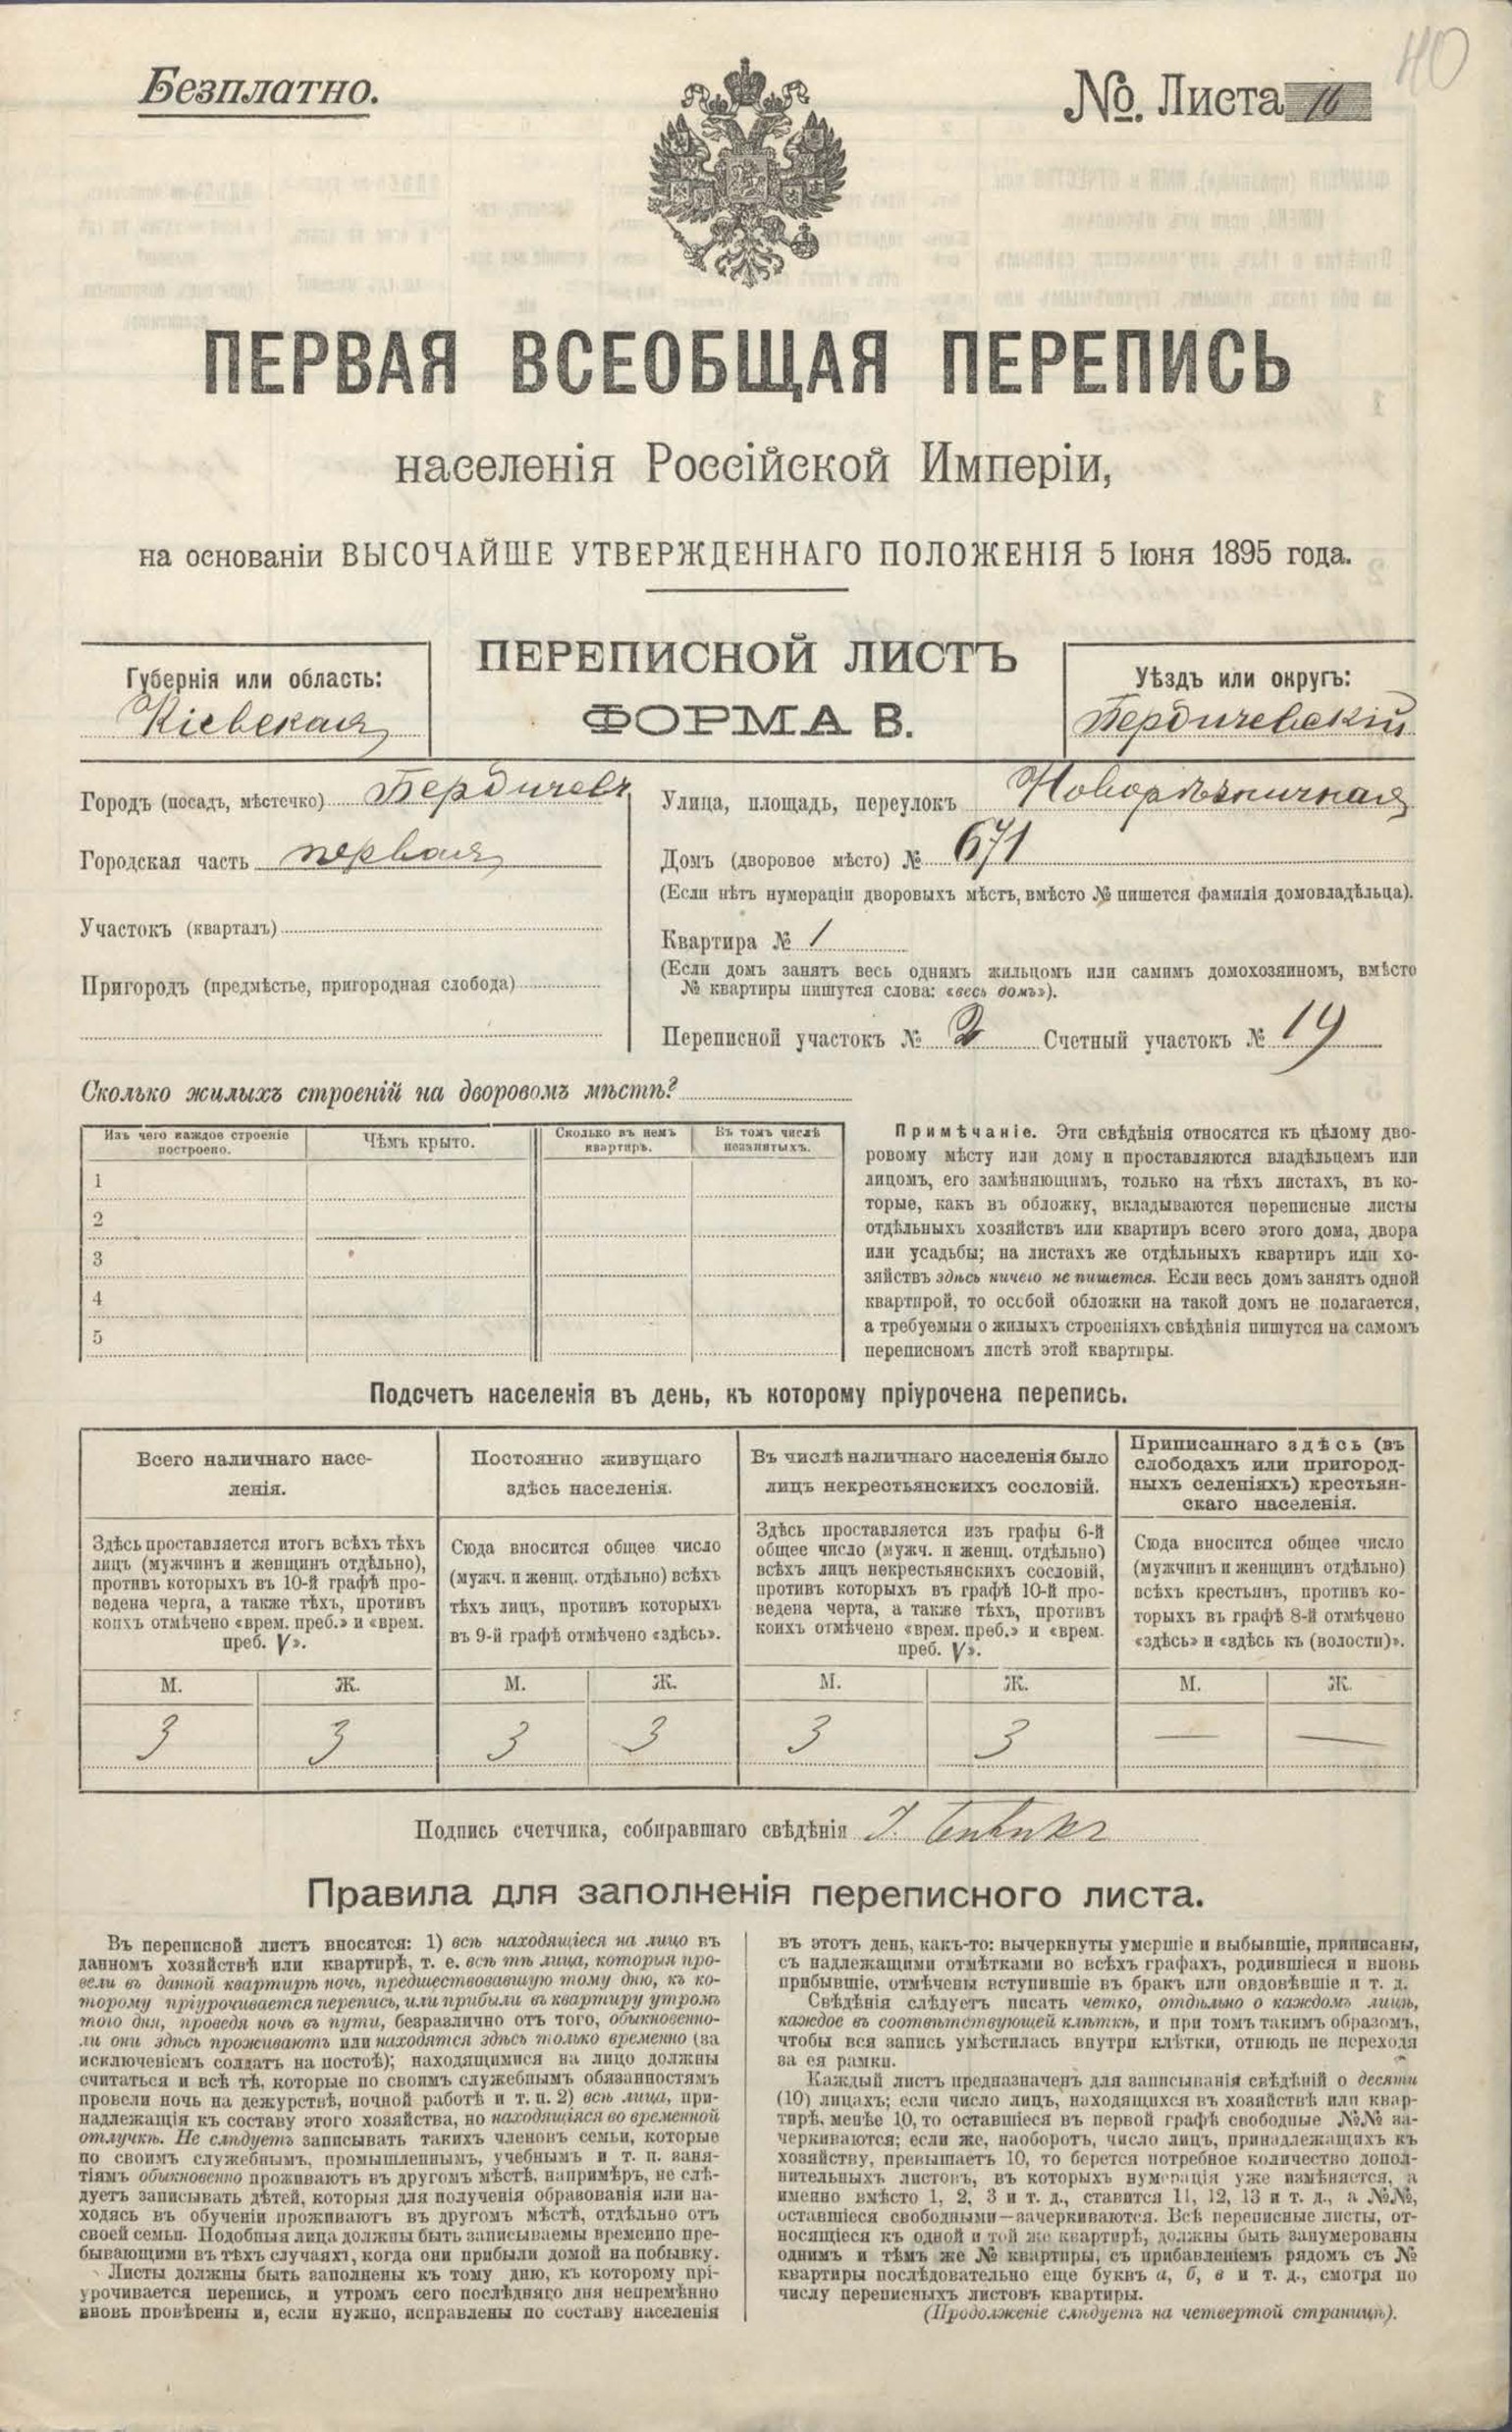 40
Безплатно.
№. Листа 16
ПЕРВАЯ ВСЕОБЩАЯ ПЕРЕПИСЬ
населенія Россійской Имперіи,
на основаніи ВЫСОЧАЙШЕ УТВЕРЖДЕННАГО ПОЛОЖЕНІЯ 5 Іюня 1895 года.
ПЕРЕПИСНОЙ ЛИСТЪ
ФОРМА В.
Губернія или область:
Кіевская
Уѣздъ или округъ:
Бердичевскій
Городъ (посадъ, мѣстечко) Бердичевъ
Городская часть первая
Участокъ (кварталъ)
Пригородъ (предмѣстье, пригородная слобода)
Улица, площадь, переулокъ
Домъ (дворовое мѣсто) № 671
(Если нѣтъ нумераціи дворовыхъ мѣстъ, вмѣсто № пишется фамилія домовладѣльца).
Квартира № 1
(Если домъ занятъ весь однимъ жильцомъ или самимъ домохозяиномъ, вмѣсто
№ квартиры пишутся слова: «весь домъ»).
Переписной участокъ № 2 Счетный участокъ № 19
Сколько жилыхъ строеній на дворовомъ мѣстѣ?
Изъ чего каждое строеніе
построено.
Чѣмъ крыто.
Сколько въ немъ
квартиръ.
Въ томъ числѣ
незанятыхъ.
1
2
3
4
5
Примѣчаніе. Эти свѣдѣнія относятся къ цѣлому дво-
ровому мѣсту или дому и проставляются владѣльцемъ или
лицомъ, его замѣняющимъ, только на тѣхъ листахъ, въ ко-
торые, какъ въ обложку, вкладываются переписные листы
отдѣльныхъ хозяйствъ или квартиръ всего этого дома, двора
или усадьбы; на листахъ же отдѣльныхъ квартиръ или хо-
зяйствъ здѣсь ничего не пишется. Если весь домъ занятъ одной
квартирой, то особой обложки на такой домъ не полагается,
а требуемыя о жилыхъ строеніяхъ свѣдѣнія пишутся на самомъ
переписномъ листѣ этой квартиры.
Подсчетъ населенія въ день, къ которому пріурочена перепись.
Всего наличнаго насе-
ленія.
Здѣсь проставляется итогъ всѣхъ тѣхъ
лицъ (мужчинъ и женщинъ отдѣльно),
противъ которыхъ въ 10-й графѣ про-
ведена черта, а также тѣхъ, противъ
коихъ отмѣчено «врем. преб.» и «врем.
преб. V».
М. Ж.
3 3
Постоянно живущаго
здѣсь населенія.
Сюда вносится общее число
(мужч. и женщ. отдѣльно) всѣхъ
тѣхъ лицъ, противъ которыхъ
въ 9-й графѣ отмѣчено «здѣсь».
М. Ж.
3 3
Въ числѣ наличнаго населенія было
лицъ некрестьянскихъ сословій.
Здѣсь проставляется изъ графы 6-й
общее число (мужч. и женщ. отдѣльно)
всѣхъ лицъ некрестьянскихъ сословій,
противъ которыхъ въ графѣ 10-й про-
ведена черта, а также тѣхъ, противъ
коихъ отмѣчено «врем. преб.» и «врем.
преб. V».
М. Ж.
3 3
Приписаннаго здѣсь (въ
слободахъ или пригород-
ныхъ селеніяхъ) крестьян-
скаго населенія.
Сюда вносится общее число
(мужчинъ и женщинъ отдѣльно)
всѣхъ крестьянъ, противъ ко-
торыхъ въ графѣ 8-й отмѣчено
«здѣсь» и «здѣсь къ (волости)».
М. Ж.
— —
Подпись счетчика, собиравшаго свѣдѣнія
Правила для заполненія переписного листа.
Въ переписной листъ вносятся: 1) всѣ находящіеся на лицо въ
данномъ хозяйствѣ или квартирѣ, т. е. всѣ тѣ лица, которыя про-
вели въ данной квартирѣ ночь, предшествовавшую тому дню, къ ко-
торому пріурочивается перепись, или прибыли въ квартиру утромъ
того дня, проведя ночь въ пути, безразлично отъ того, обыкновенно-
ли они здѣсь проживаютъ или находятся здѣсь только временно (за
исключеніемъ солдатъ на постоѣ); находящимися на лицо должны
считаться и всѣ тѣ, которые по своимъ служебнымъ обязанностямъ
провели ночь на дежурствѣ, ночной работѣ и т. п. 2) всѣ лица, при-
надлежащія къ составу этого хозяйства, но находящіяся во временной
отлучкѣ. Не слѣдуетъ записывать такихъ членовъ семьи, которые
по своимъ служебнымъ, промышленнымъ, учебнымъ и т. п. заня-
тіямъ обыкновенно проживаютъ въ другомъ мѣстѣ, напримѣръ, не слѣ-
дуетъ записывать дѣтей, которыя для полученія образованія или на-
ходясь въ обученіи проживаютъ въ другомъ мѣстѣ, отдѣльно отъ
своей семьи. Подобныя лица должны быть записываемы временно пре-
бывающими въ тѣхъ случаяхъ, когда они прибыли домой на побывку.
Листы должны быть заполнены къ тому дню, къ которому прі-
урочивается перепись, и утромъ сего послѣдняго дня непремѣнно
вновь провѣрены и, если нужно, исправлены по составу населенія
въ этотъ день, какъ-то: вычеркнуты умершіе и выбывшіе, приписаны,
съ надлежащими отмѣтками во всѣхъ графахъ, родившіеся и вновь
прибывшіе, отмѣчены вступившіе въ бракъ или овдовѣвшіе и т. д.
Свѣдѣнія слѣдуетъ писать четко, отдѣльно о каждомъ лицѣ,
каждое въ соотвѣтствующей клѣткѣ, и при томъ такимъ образомъ,
чтобы вся запись умѣстилась внутри клѣтки, отнюдь не переходя
за ея рамки.
Каждый листъ предназначенъ для записыванія свѣдѣній о десяти
(10) лицахъ; если число лицъ, находящихся въ хозяйствѣ или квар-
тирѣ, менѣе 10, то оставшіеся въ первой графѣ свободные №№ за-
черкиваются; если же, наоборотъ, число лицъ, принадлежащихъ къ
хозяйству, превышаетъ 10, то берется потребное количество допол-
нительныхъ листовъ, въ которыхъ нумерація уже измѣняется, а
именно вмѣсто 1, 2, 3 и т. д., ставится 11, 12, 13 и т. д., а №№,
оставшіеся свободными—зачеркиваются. Всѣ переписные листы, от-
носящіеся къ одной и той же квартирѣ, должны быть занумерованы
однимъ и тѣмъ же № квартиры, съ прибавленіемъ рядомъ съ №
квартиры послѣдовательно еще буквъ а, б, в и т. д., смотря по
числу переписныхъ листовъ квартиры.
(Продолженіе слѣдуетъ на четвертой страницѣ).